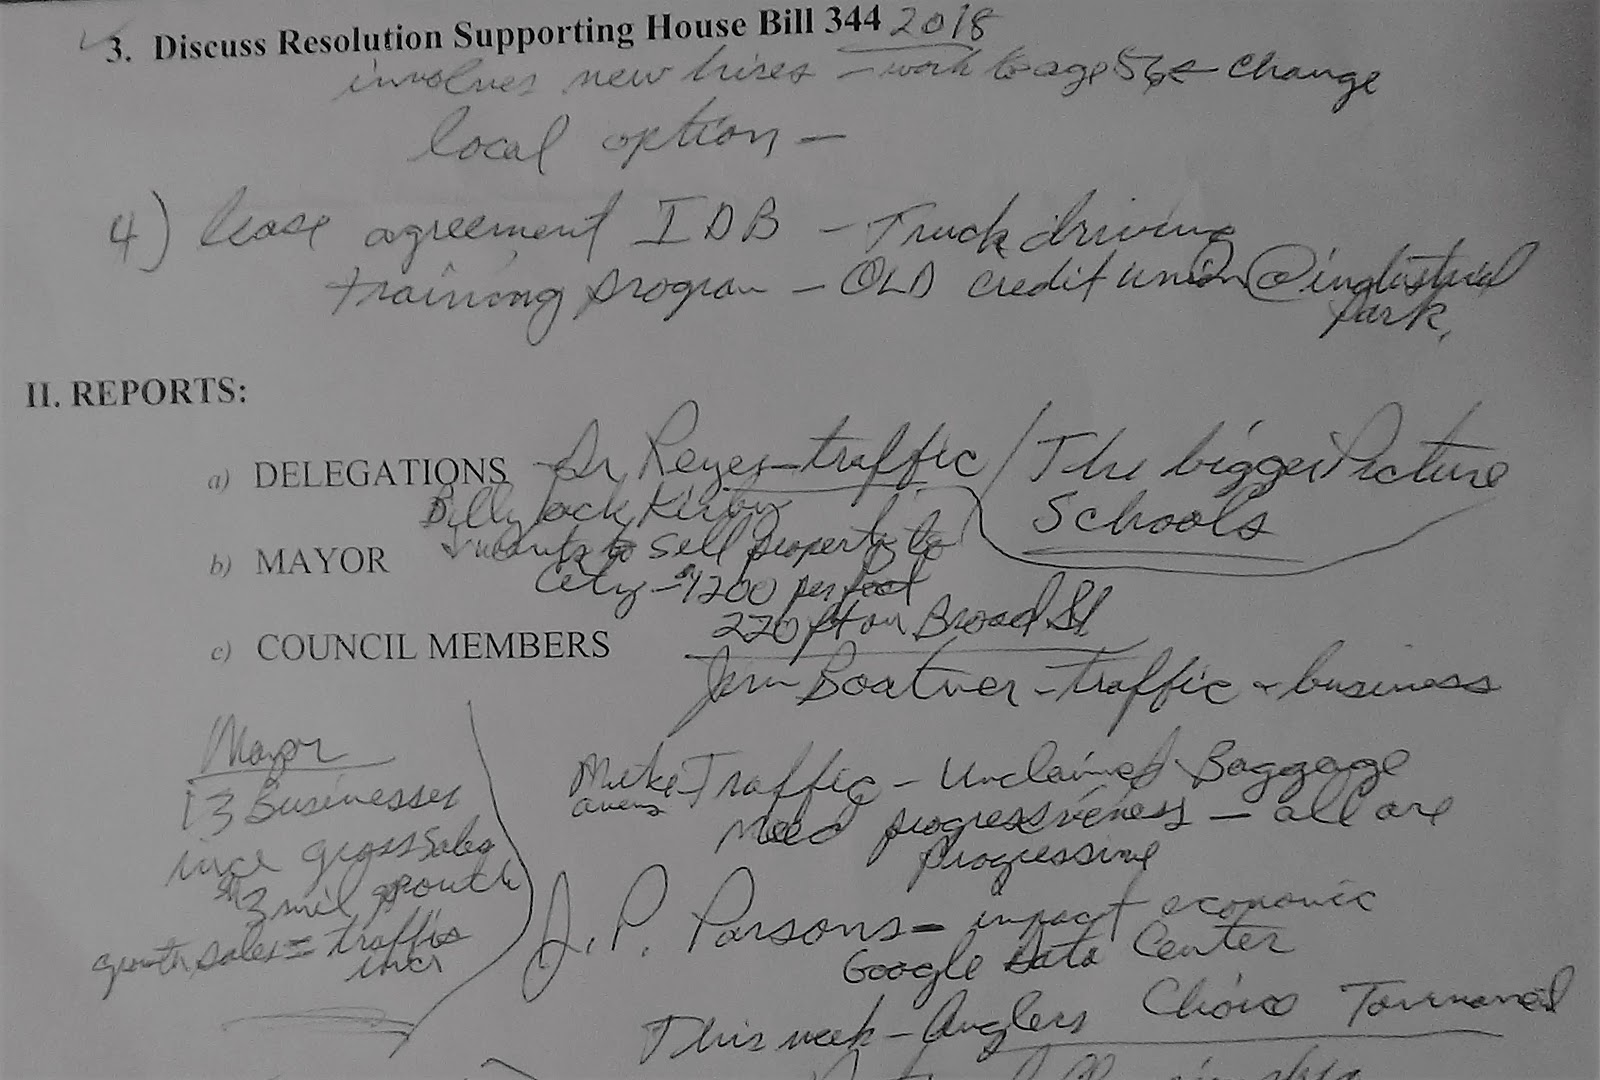 3. Discuss Resolution Supporting House Bill 344 2018
involves new hires - work to age 56 ← change
local option -
4) lease agreement IDB - Truck driving
training program - OLD credit union @ industrial
park.
II. REPORTS:
a) DELEGATIONS - Dr Reyes - traffic / The bigger Picture
Schools
Billy Jack Kirby
wants to sell property to
b) MAYOR
City - $1200 per foot
220 ft on Broad St
c) COUNCIL MEMBERS
Jim Boatner - traffic & business
Mayor
13 Businesses
ince gross sales
$3 mil growth
growth sales = traffic
incr
Mike Traffic - Unclaimed Baggage
Need progressiveness - all are
progressive
J. P. Parsons - impact economic
Google Data Center
This week - Anglers Choice Tournament